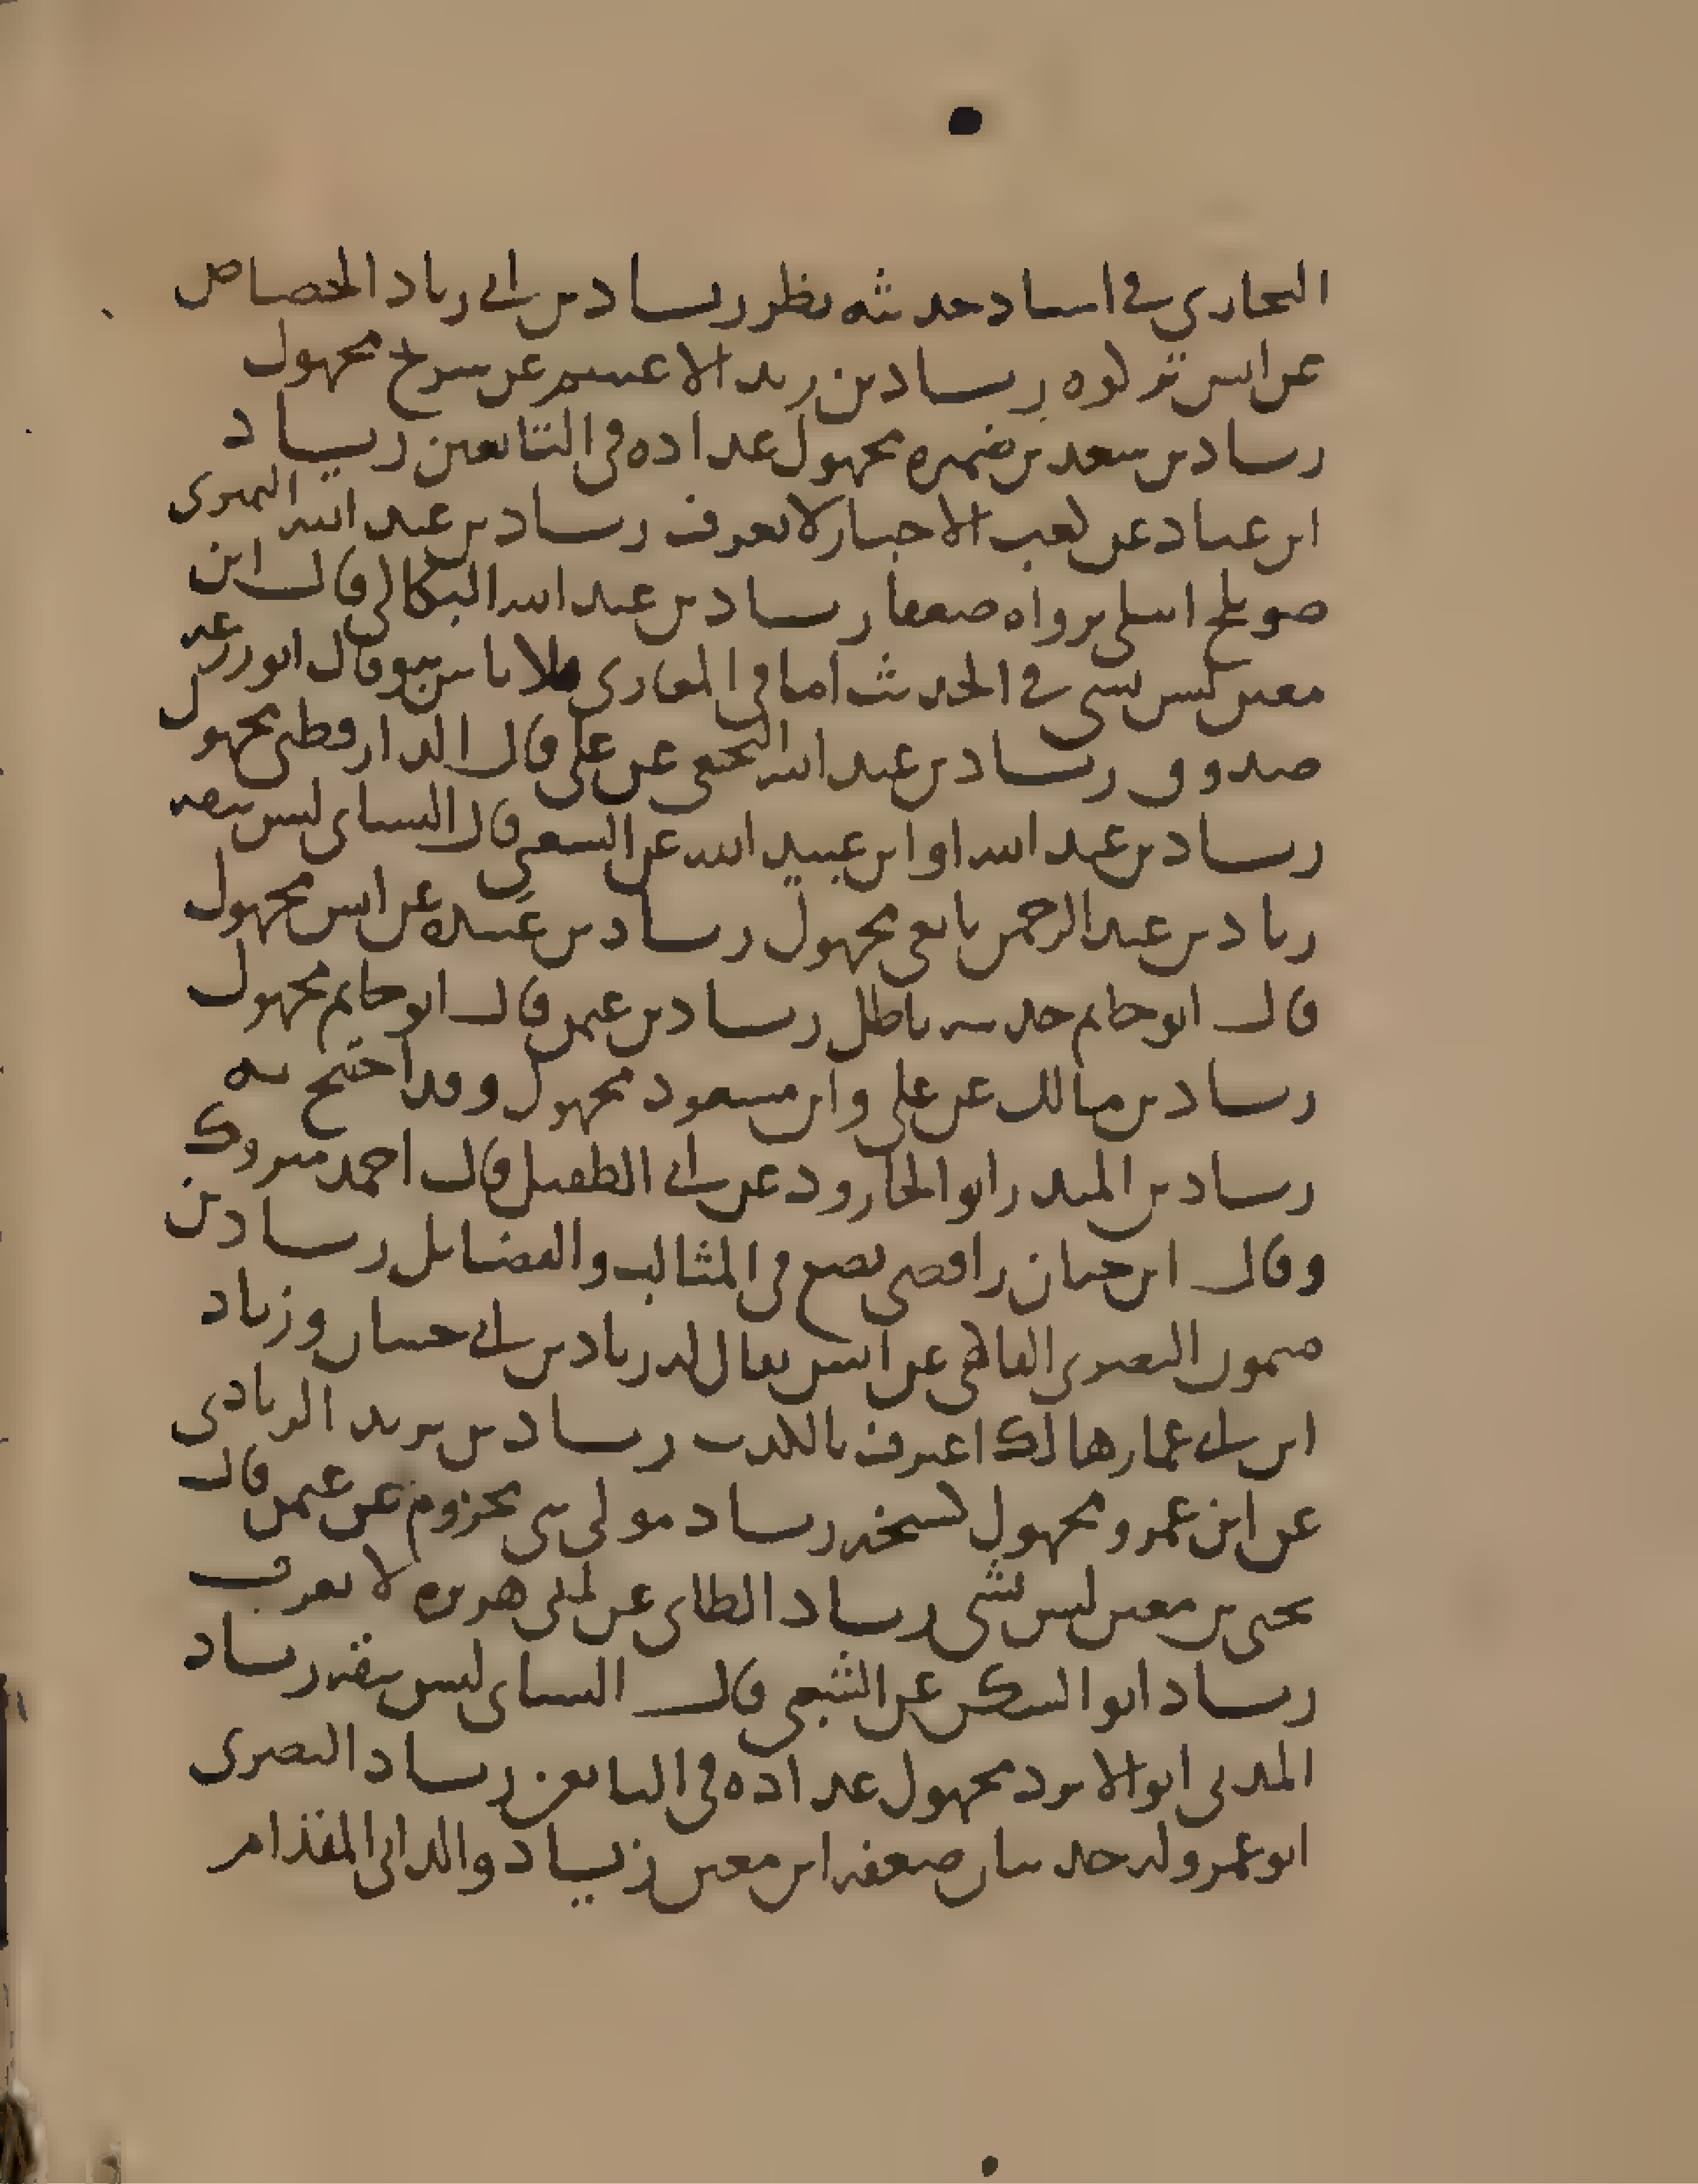 البخاري في اسناد حديثه نظر زياد بن ابي زياد الجصاص
عن انس تركوه زياد بن زيد الاعسم عن شريح مجهول
زياد بن سعد بن ضميره مجهول عداده في التابعين زياد
ابن عباد عن كعب الاحبار لا يعرف زياد بن عبد الله النميري
صويلح ابتلي برواه ضعفا زياد بن عبد الله البكالي قال ابن
معين ليس بشي في الحديث اما في المغازي فلا باس به وقال ابو زرعه
صدوق زياد بن عبد الله النخعي عن علي قال الدارقطني مجهول
زياد بن عبد الله او ابن عبيد الله عن الشعبي قال النساي ليس بثقه
زياد بن عبد الرحمن تابعي مجهول زياد بن عبيده عن انس مجهول
قال ابو حاتم حديثه باطل زياد بن عمر قال ابو حاتم مجهول
زياد بن مالك عن علي وابن مسعود مجهول وقد احتج به
زياد بن المنذر ابو الجارود عن ابي الطفيل قال احمد متروك
وقال ابن حبان رافضي يضع في المثالب والفضايل زياد بن
ميمون البصري الفاكهي عن انس يقال له زياد بن ابي حسان وزياد
ابن ابي عمار هالك اعترف بالكذب زياد بن يزيد الزيادي
عن ابن عمرو مجهول كشيخه زياد مولى بني مخزوم عن عمر قال
يحيى بن معين ليس بشي زياد الطاي عن ابي هريره لا يعرف
زياد ابو السكن عن الشعبي قال النساي ليس بثقه زياد
المدني ابو الابرد مجهول عداده في التابعين زياد البصري
ابو عمر وله حديثان ضعفه ابن معين زياد والد ابي المقدام